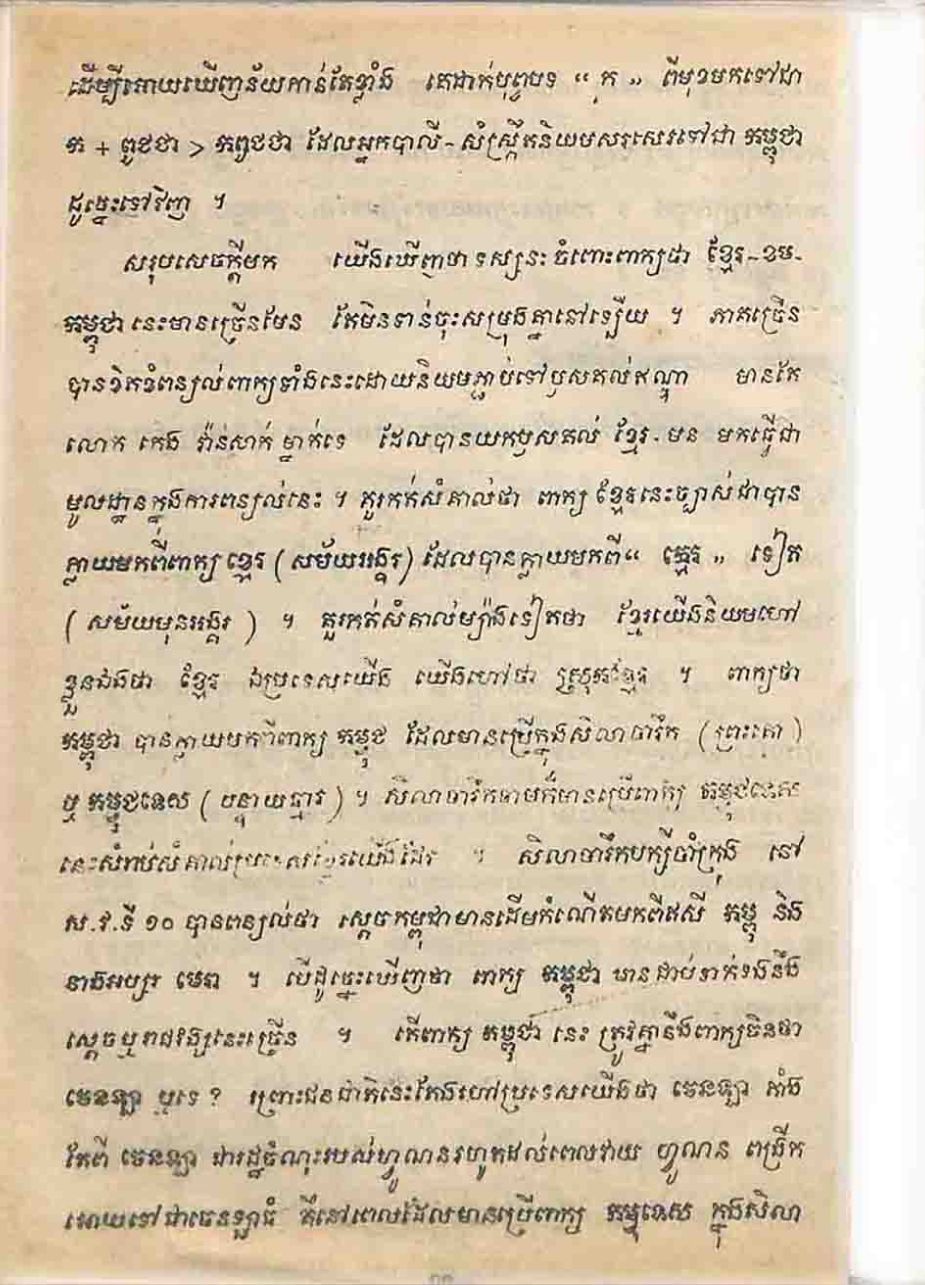 ដើម្បីអោយឃើញន័យកាន់តែខ្លាំង គេដាក់បុព្វបទ “ កុ ” ពីមុខមកទៅជា
ក + ពូជថា > កពូជថា ដែលអ្នកបាលី - សំស្ក្រឹតនិយមសរសេរទៅជា កម្ពុជា
ដូច្នេះទៅវិញ ។
សរុបសេចក្តីមក យើងឃើញថា ទស្សនះ ចំពោះពាក្យជា ខ្មែរ-ខម-
កម្ពុជា នេះមានច្រើនមែន តែមិនទាន់ចុះសម្រុងគ្នានៅឡើយ ។ ភាគច្រើន
បានខិតខំពន្យល់ពាក្យទាំងនេះដោយនិយមភ្ជាប់ទៅឫសគល់ឥណ្ឌា មានតែ
លោក កេង វ៉ាន់សាក់ ម្នាក់ទេ ដែលបានយកឫសគល់ ខ្មែរ - មន មកធ្វើជា
មូលដ្ឋានក្នុងការពន្យល់នេះ ។ គួរកត់សំគាល់ថា ពាក្យ ខ្មែរនេះច្បាស់ជាបាន
ក្លាយមកពីពាក្យ ខ្មេរ ( សម័យអង្គរ ) ដែលបានក្លាយមកពី “ ក្មេរ ” ទៀត
( សម័យមុនអង្គរ ) ។ គួរកត់សំគាល់ម្យ៉ាងទៀតថា ខ្មែរយើងនិយមហៅ
ខ្លួនឯងថា ខ្មែរ ឯប្រទេសយើង យើងហៅថា ស្រុកខ្មែរ ។ ពាក្យថា
កម្ពុជា បានក្លាយមកពីពាក្យ កម្វុជ ដែលមានប្រើក្នុងសិលាចារឹក ( ព្រះគោ )
ឬ កម្វុជទេស ( បន្ទាយឆ្មារ ) ។ សិលាចារឹកចាមក៏មានប្រើពាក្យ កម្វុជទេស
នេះសំរាប់សំគាល់ប្រទេសខ្មែរយើងដែរ ។ សិលាចារឹកបក្សីចាំក្រុង នៅ
ស.វ.ទី ១០ បានពន្យល់ថា ស្តេចកម្ពុជាមានដើមកំណើតមកពីឥសី កម្ពុ និង
នាងអប្សរ មេរា ។ បើដូច្នេះឃើញថា ពាក្យ កម្ពុជា មានជាប់ទាក់ទងនឹង
ស្តេចឬរាជវង្សនេះច្រើន ។ តើពាក្យ កម្ពុជា នេះ ត្រូវគ្នានឹងពាក្យចិនថា
ចេនឡា ឬទេ ? ព្រោះជនជាតិនេះតែងហៅប្រទេសយើងថា ចេនឡា តាំង
តែពី ចេនឡា ជារដ្ឋចំណុះរបស់ហ្វូណនរហូតដល់ពេលវាយ ហ្វូណន ពង្រីក
អោយទៅជាចេនឡាធំ គឺនៅពេលដែលមានប្រើពាក្យ កម្វុទេស ក្នុងសិលា